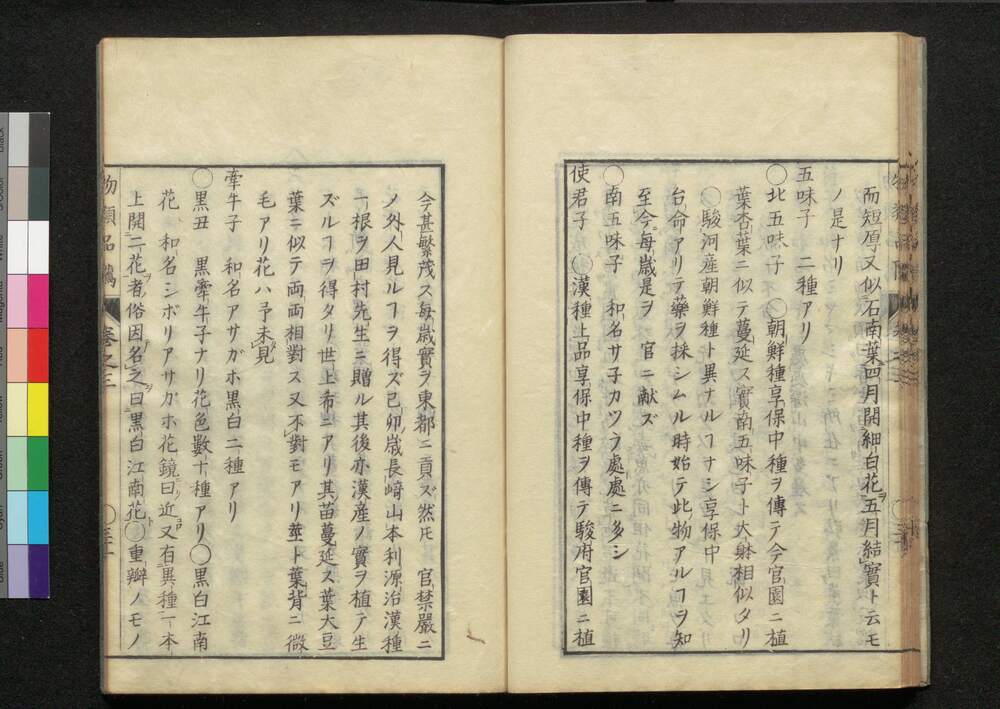 而短厚又似石南葉四月開細白花ヲ五月結實ト云モ
ノ是ナリ
五味子 二種アリ
〇北五味子 〇朝鮮種享保中種ヲ傳テ今官園ニ植
葉杏葉ニ似テ蔓延ス實南五味子ト大躰相似タリ
〇駿河産朝鮮種ト異ナルヿナシ享保中
台命アリテ藥ヲ採シムル時始テ此物アルヿヲ知
至今每歳是ヲ 官ニ献ズ
〇南五味子 和名サ子カツラ處處ニ多シ
使君子 〇漢種上品享保中種ヲ傳テ駿府官園ニ植
今甚繁茂ス每歳實ヲ東都ニ貢ズ然𪜈 官禁嚴ニ
ノ外人見ルヿヲ得ズ己卯歳長﨑山本利源治漢種
一根ヲ田村先生ニ贈ル其後亦漢産ノ實ヲ植テ生
ズルヿヲ得タリ世上希ニアリ其苗蔓延ス葉大豆
葉ニ似テ両両相對ス又不對モアリ莖ト葉背ニ微
毛アリ花ハ予未見
牽牛子 和名アサガホ黒白二種アリ
〇黒丑 黒牽牛子ナリ花色數十種アリ〇黒白江南
花 和名シボリアサガホ花鏡曰近又有異種一本
上開二花者俗因名之曰黒白江南花〇重瓣ノモノ
物類品隲 卷之三